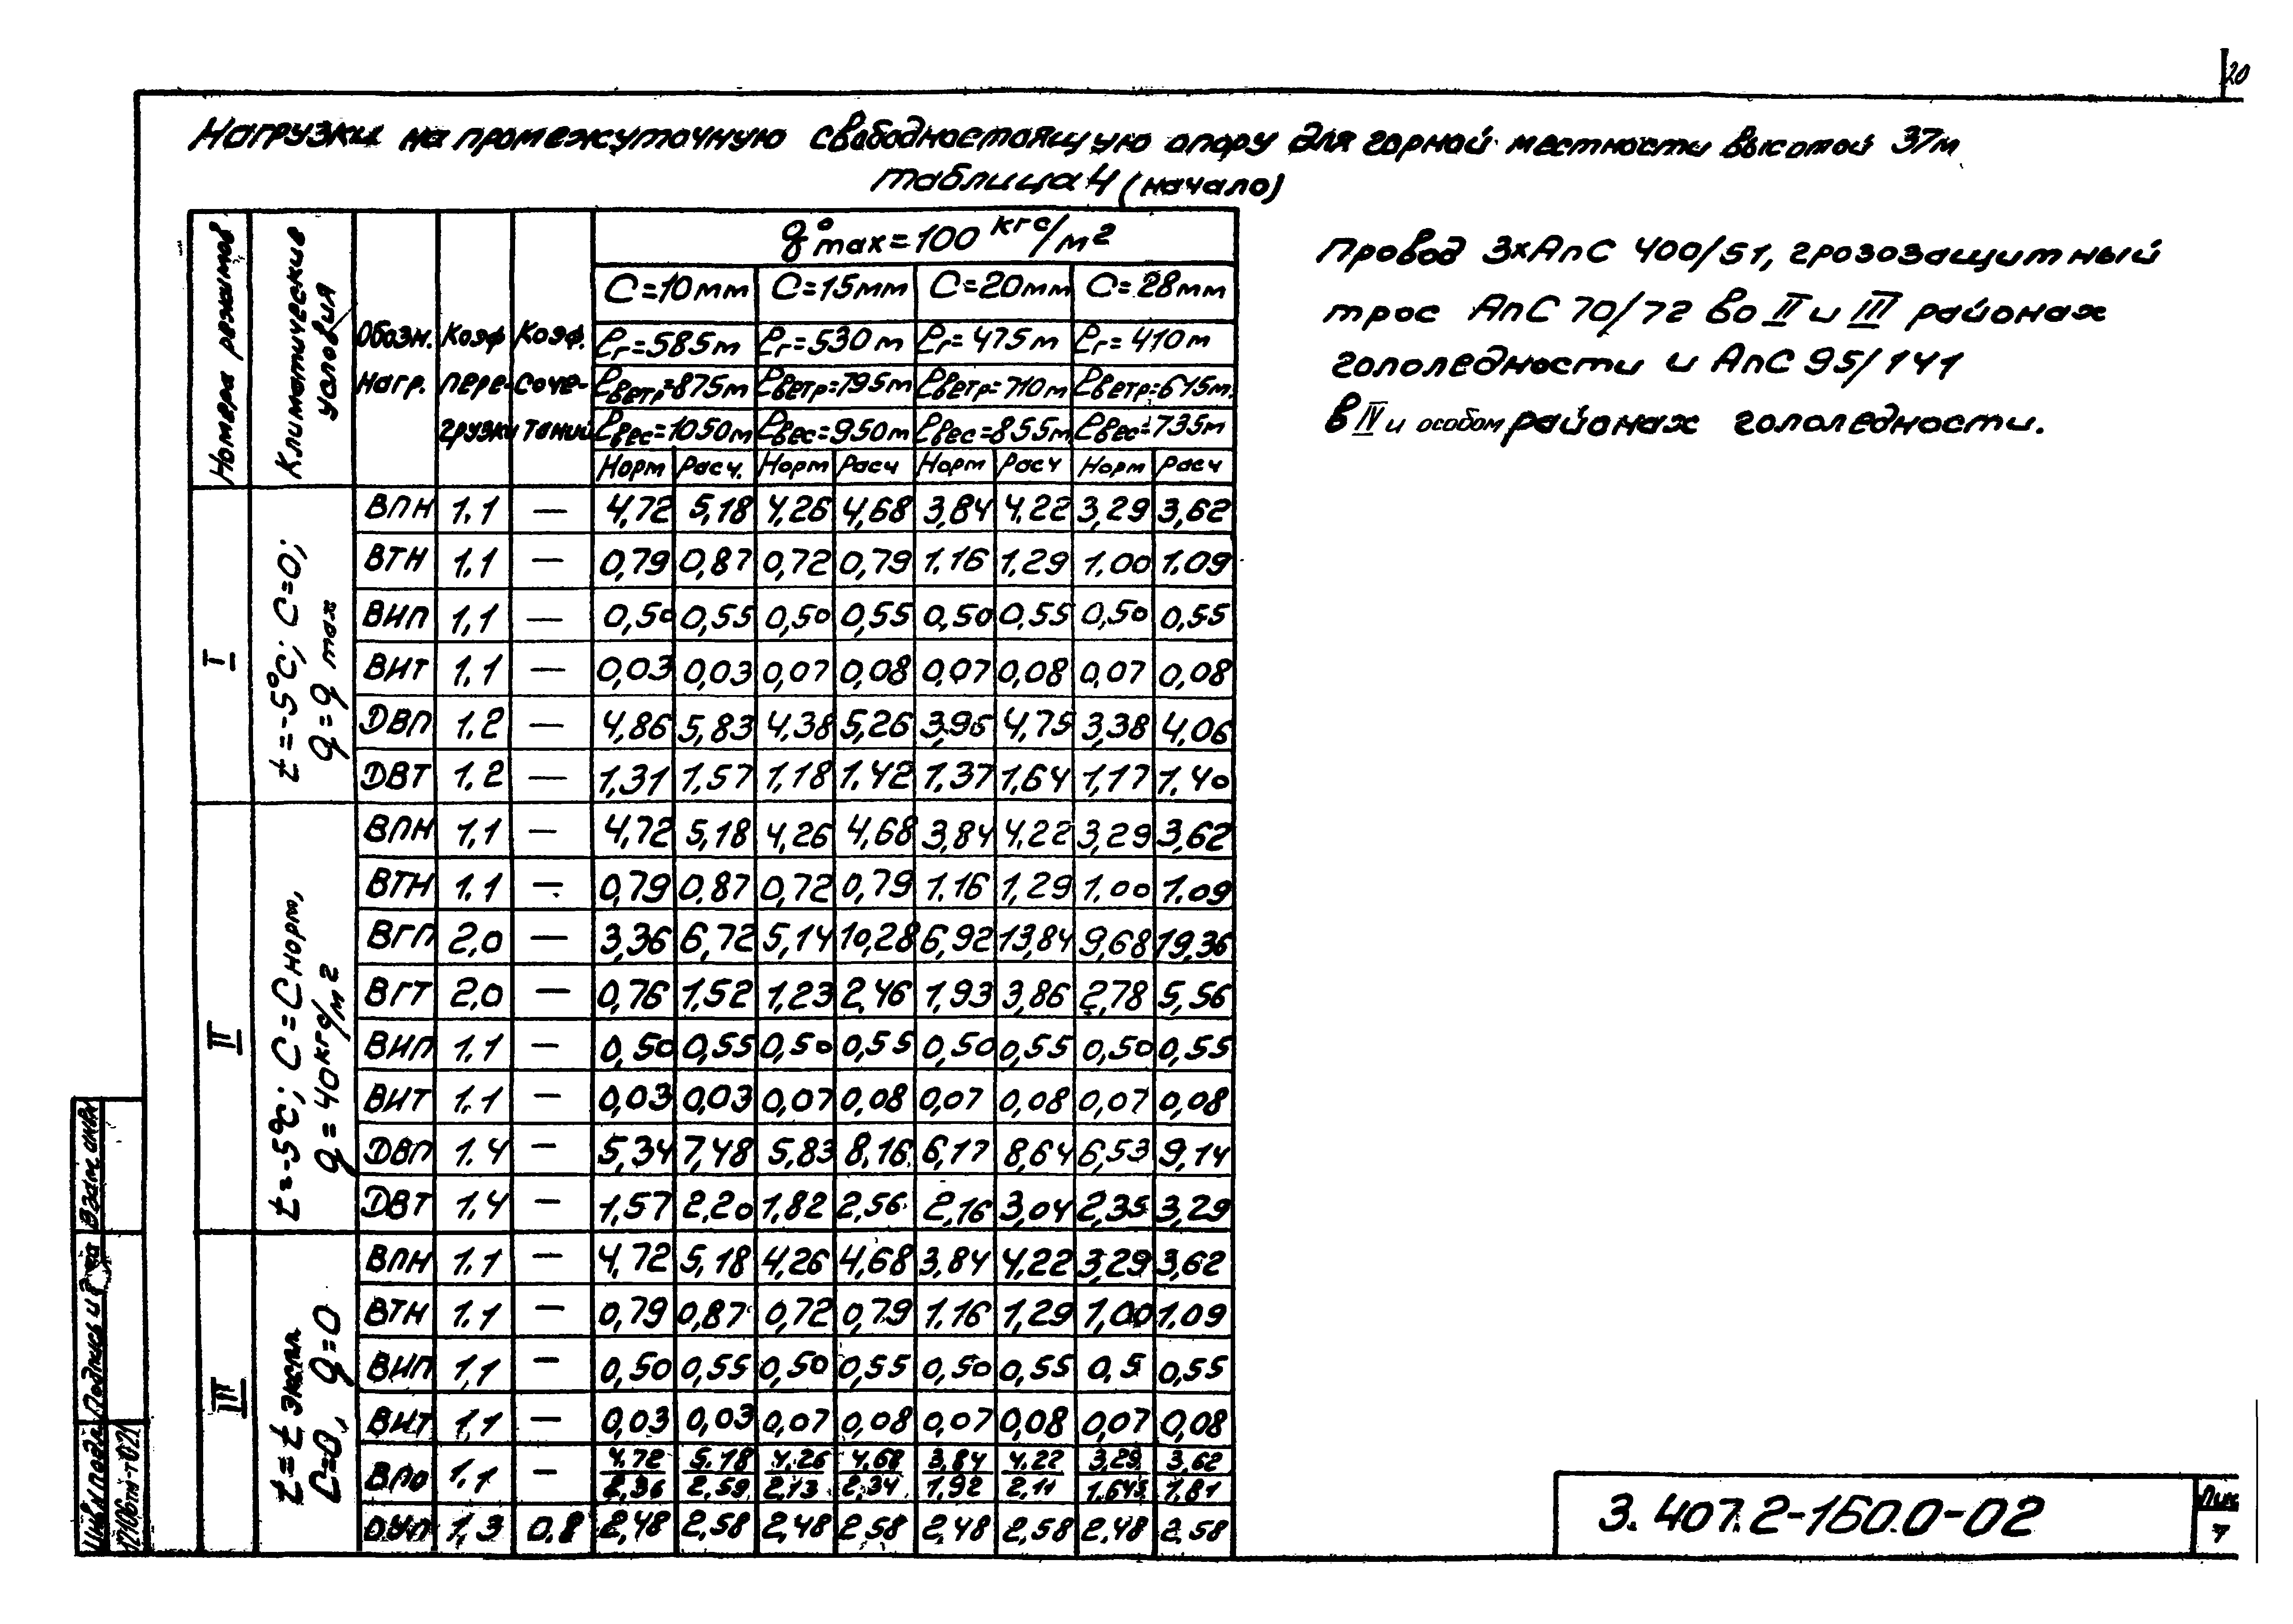 20
Нагрузки на промежуточную свободностоящую опору для горной местности высотой 37м
таблица 4 (начало)
Номера режимов
Климатические условия
Обозн. нагр.
Коэф. перегрузки
Коэф. сочетаний
q⁰max=100 кгс/м²
С=10мм С=15мм С=20мм С=28мм
ℓг=585м ℓг=530м ℓг=475м ℓг=410м
ℓветр=875м ℓветр=795м ℓветр=710м ℓветр=615м
ℓвес=1050м ℓвес=950м ℓвес=855м ℓвес=735м
Норм Расч. Норм Расч Норм Расч Норм Расч
I
t=-5°С; С=0;
q=q max
ВПН 1.1 — 4,72 5,18 4,26 4,68 3,84 4,22 3,29 3,62
ВТН 1.1 — 0,79 0,87 0,72 0,79 1.16 1,29 1.00 1.09
ВИП 1,1 — 0,50 0,55 0,50 0,55 0,50 0,55 0,50 0,55
ВИТ 1.1 — 0,03 0,03 0,07 0,08 0,07 0,08 0,07 0,08
ДВП 1.2 — 4,86 5,83 4,38 5,26 3,96 4,75 3,38 4,06
ДВТ 1.2 — 1,31 1,57 1,18 1.42 1,37 1,64 1,17 1.40
II
t=-5°С; С=Снорм,
q=40кгс/м²
ВПН 1,1 — 4,72 5,18 4,26 4,68 3,84 4,22 3,29 3,62
ВТН 1.1 — 0,79 0,87 0,72 0,79 1.16 1,29 1.00 1.09
ВГП 2,0 — 3,36 6,72 5,14 10,28 6,92 13,84 9,68 19,36
ВГТ 2,0 — 0,76 1,52 1,23 2,46 1,93 3,86 2,78 5,56
ВИП 1.1 — 0,50 0,55 0,50 0,55 0,50 0,55 0,50 0,55
ВИТ 1.1 — 0,03 0,03 0,07 0,08 0,07 0,08 0,07 0,08
ДВП 1.4 — 5,34 7,48 5,83 8,16 6,17 8,64 6,53 9,14
ДВТ 1.4 — 1,57 2,20 1,82 2,56 2,16 3,04 2,35 3,29
III
t=t экспл
С=0, q=0
ВПН 1.1 — 4,72 5,18 4,26 4,68 3,84 4,22 3,29 3,62
ВТН 1.1 — 0,79 0,87 0,72 0,79 1.16 1,29 1,00 1.09
ВИП 1,1 — 0,50 0,55 0,50 0,55 0,50 0,55 0,5 0,55
ВИТ 1,1 — 0,03 0,03 0,07 0,08 0,07 0,08 0,07 0,08
ВПО 1,1 — 4,72/2,36 5.18/2,59 4,26/2,13 4,68/2,34 3,84/1,92 4,22/2,11 3,29/1,645 3,62/1,81
ОУП 1,3 0,8 2,48 2,58 2,48 2,58 2,48 2,58 2,48 2,58
Провод 3хАпС 400/51, грозозащитный
трос АпС 70/72 во II и III районах
гололедности и АпС 95/141
в IV и особом районах гололедности.
Взам. инв №
Подпись и дата
Инв № подл.
12106тм-т02
3.407.2-160.0-02
Лист
7